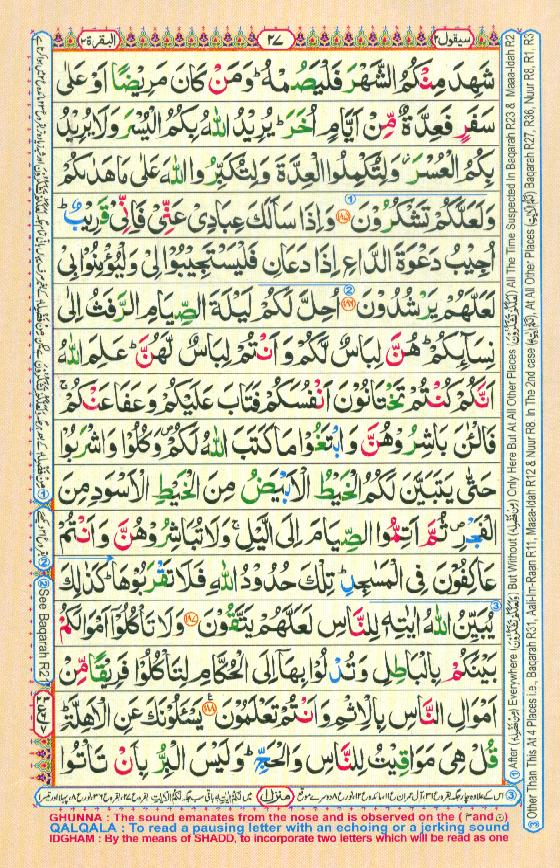 سيقول ٢
٢٧
البقرة ٢
شَهِدَ مِنْكُمُ الشَّهْرَ فَلْيَصُمْهُ ؕ وَمَنْ كَانَ مَرِيْضًا اَوْ عَلٰى
سَفَرٍ فَعِدَّةٌ مِّنْ اَيَّامٍ اُخَرَ ؕ يُرِيْدُ اللهُ بِكُمُ الْيُسْرَ وَلَا يُرِيْدُ
بِكُمُ الْعُسْرَ ؗ وَلِتُكْمِلُوا الْعِدَّةَ وَلِتُكَبِّرُوا اللهَ عَلٰى مَا هَدٰىكُمْ
وَلَعَلَّكُمْ تَشْكُرُوْنَ ﴿۱۸۵﴾ وَاِذَا سَاَلَكَ عِبَادِىْ عَنِّىْ فَاِنِّىْ قَرِيْبٌ ؕ
اُجِيْبُ دَعْوَةَ الدَّاعِ اِذَا دَعَانِ فَلْيَسْتَجِيْبُوْا لِىْ وَلْيُؤْمِنُوْا بِىْ
لَعَلَّهُمْ يَرْشُدُوْنَ ﴿۱۸۶﴾ اُحِلَّ لَكُمْ لَيْلَةَ الصِّيَامِ الرَّفَثُ اِلٰى
نِسَآئِكُمْ ؕ هُنَّ لِبَاسٌ لَّكُمْ وَاَنْتُمْ لِبَاسٌ لَّهُنَّ ؕ عَلِمَ اللهُ
اَنَّكُمْ كُنْتُمْ تَخْتَانُوْنَ اَنْفُسَكُمْ فَتَابَ عَلَيْكُمْ وَعَفَا عَنْكُمْ ۚ
فَالْئٰنَ بَاشِرُوْهُنَّ وَابْتَغُوْا مَا كَتَبَ اللهُ لَكُمْ ۪ وَكُلُوْا وَاشْرَبُوْا
حَتّٰى يَتَبَيَّنَ لَكُمُ الْخَيْطُ الْاَبْيَضُ مِنَ الْخَيْطِ الْاَسْوَدِ مِنَ
الْفَجْرِ ۪ ثُمَّ اَتِمُّوا الصِّيَامَ اِلَى الَّيْلِ ۚ وَلَا تُبَاشِرُوْهُنَّ وَاَنْتُمْ
عَاكِفُوْنَ فِى الْمَسٰجِدِ ؕ تِلْكَ حُدُوْدُ اللهِ فَلَا تَقْرَبُوْهَا ؕ كَذٰلِكَ
يُبَيِّنُ اللهُ اٰيٰتِهٖ لِلنَّاسِ لَعَلَّهُمْ يَتَّقُوْنَ ﴿۱۸۷﴾ وَلَا تَاْكُلُوْٓا اَمْوَالَكُمْ
بَيْنَكُمْ بِالْبَاطِلِ وَتُدْلُوْا بِهَآ اِلَى الْحُكَّامِ لِتَاْكُلُوْا فَرِيْقًا مِّنْ
اَمْوَالِ النَّاسِ بِالْاِثْمِ وَاَنْتُمْ تَعْلَمُوْنَ ﴿۱۸۸﴾ يَسْئَلُوْنَكَ عَنِ الْاَهِلَّةِ ؕ
قُلْ هِىَ مَوَاقِيْتُ لِلنَّاسِ وَالْحَجِّ ؕ وَلَيْسَ الْبِرُّ بِاَنْ تَاْتُوا
منزل ١
① After Everywhere But Without Only Here But At All Other Places All The Time Suspected In Baqarah R23 & Maaa-Idah R2
③ Other Than This At 4 Places i.e., Baqarah R31, Aali-Im-Raan R11, Maaa-Idah R12 & Nuur R8. In The 2nd case At All Other Places Baqarah R27, R36, Nuur R8, R1, R3
② See Baqarah R2
GHUNNA : The sound emanates from the nose and is observed on the ( and )
QALQALA : To read a pausing letter with an echoing or a jerking sound
IDGHAM : By the means of SHADD, to incorporate two letters which will be read as one